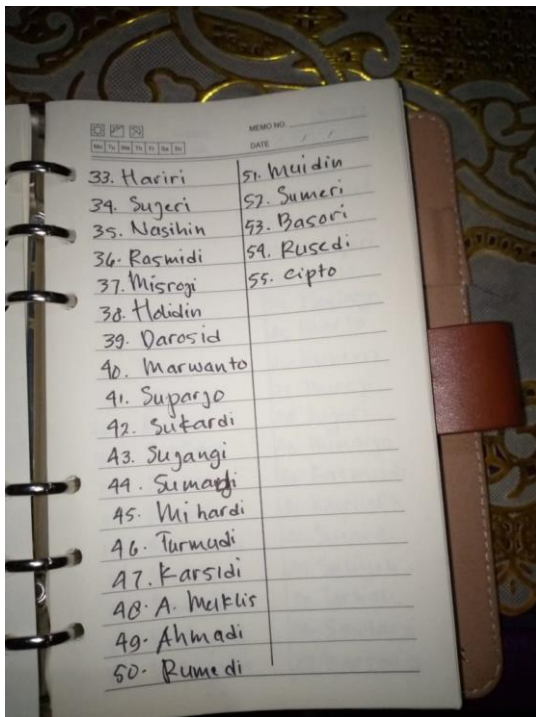 MEMO NO.
Mo Tu We Th Fr Sa Su
DATE / /
33. Hariri
34. Sugeri
35. Nasihin
36. Rasmidi
37. Misrogi
38. Holidin
39. Darosid
40. Marwanto
41. Suparjo
42. Sukardi
43. Sugangi
44.
45. Mihardi
46. Turmudi
47. Karsidi
48. A. Muklis
49. Ahmadi
50. Rumedi
51. Muidin
52. Sumeri
53. Basori
54. Rusedi
55. Cipto